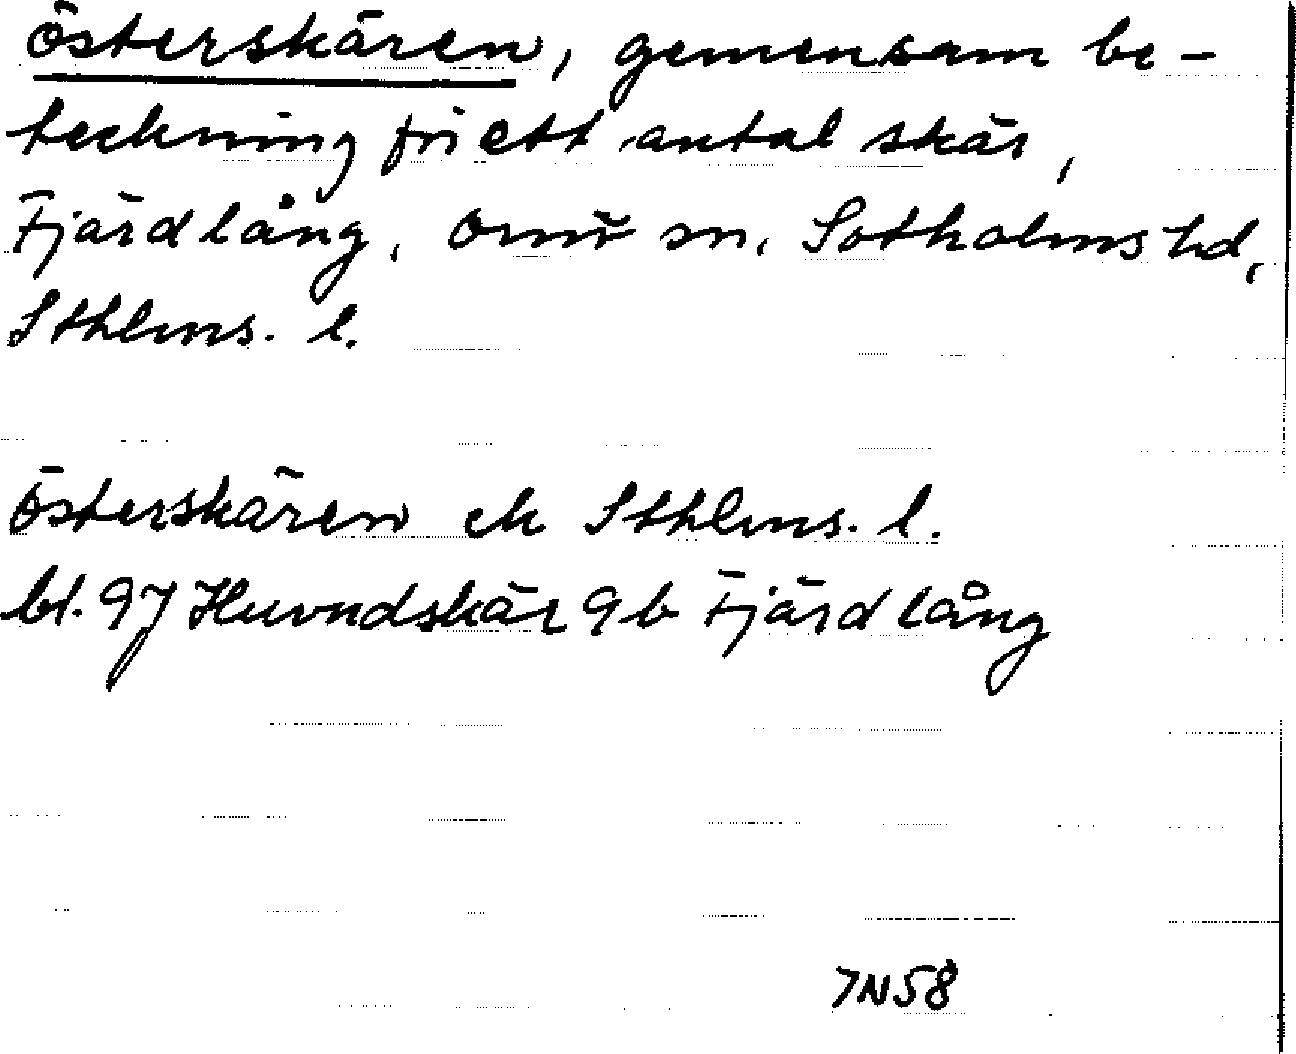 Österskären, gemensam be-
teckning för ett antal skär,
Fjärdlång, Ornö sn, Sotholms hd,
Sthlms. l.
Österskären ek Sthlms. l.
bl. 9J Huvudskär 9b Fjärdlång
JN58